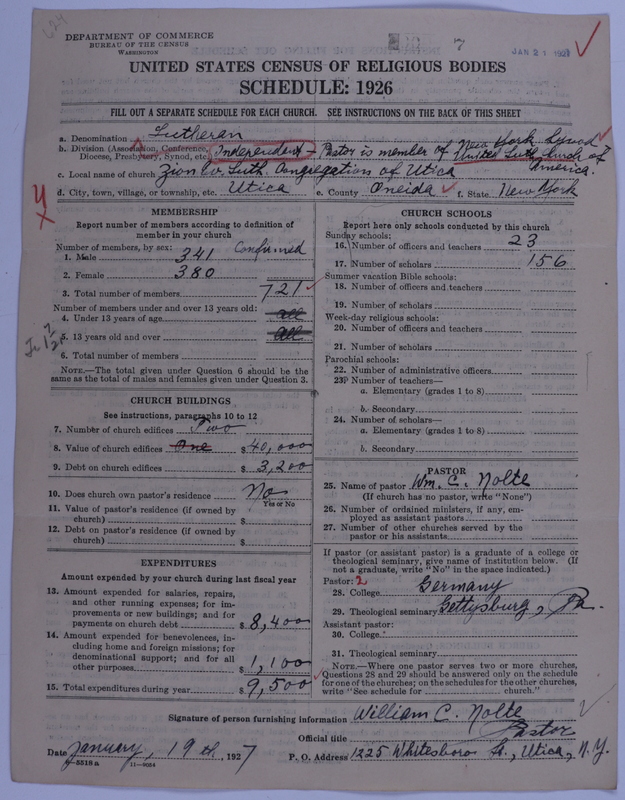 DEPARTMENT OF COMMERCE
BUREAU OF THE CENSUS
WASHINGTON
7
JAN 21 192
UNITED STATES CENSUS OF RELIGIOUS BODIES
SCHEDULE: 1926
FILL OUT A SEPARATE SCHEDULE FOR EACH CHURCH. SEE INSTRUCTIONS ON THE BACK OF THIS SHEET
a. Denomination Lutheran
b. Division (Association, Conference, Diocese, Presbytery, Synod, etc.) Independent - Pastor is member of New York Synod United Luth. Church of America.
c. Local name of church Zion Ev. Luth. Congregation of Utica
d. City, town, village, or township, etc. Utica e. County Oneida f. State New York
MEMBERSHIP
Report number of members according to definition of member in your church
Number of members, by sex: Confirmed
1. Male 341
2. Female 380
3. Total number of members 721
Number of members under and over 13 years old:
4. Under 13 years of age all
5. 13 years old and over all
6. Total number of members
NOTE.—The total given under Question 6 should be the same as the total of males and females given under Question 3.
CHURCH BUILDINGS
See instructions, paragraphs 10 to 12
7. Number of church edifices Two
8. Value of church edifices One $ 40,000
9. Debt on church edifices $ 3,200
10. Does church own pastor's residence No
Yes or No
11. Value of pastor's residence (if owned by church) $
12. Debt on pastor's residence (if owned by church) $
EXPENDITURES
Amount expended by your church during last fiscal year
13. Amount expended for salaries, repairs, and other running expenses; for improvements or new buildings; and for payments on church debt $ 8,400
14. Amount expended for benevolences, including home and foreign missions; for denominational support; and for all other purposes $ 1,100
15. Total expenditures during year $ 9,500
CHURCH SCHOOLS
Report here only schools conducted by this church
Sunday schools:
16. Number of officers and teachers 23
17. Number of scholars 156
Summer vacation Bible schools:
18. Number of officers and teachers
19. Number of scholars
Week-day religious schools:
20. Number of officers and teachers
21. Number of scholars
Parochial schools:
22. Number of administrative officers
23. Number of teachers—
a. Elementary (grades 1 to 8)
b. Secondary
24. Number of scholars—
a. Elementary (grades 1 to 8)
b. Secondary
PASTOR
25. Name of pastor Wm. C. Nolte
(If church has no pastor, write "None")
26. Number of ordained ministers, if any, employed as assistant pastors
27. Number of other churches served by the pastor or his assistants
If pastor (or assistant pastor) is a graduate of a college or theological seminary, give name of institution below. (If not a graduate, write "No" in the space indicated.)
Pastor: 2
28. College Germany
29. Theological seminary Gettysburg, Pa.
Assistant pastor:
30. College
31. Theological seminary
NOTE.—Where one pastor serves two or more churches, Questions 28 and 29 should be answered only on the schedule for one of the churches; on the schedules for the other churches, write "See schedule for church."
Signature of person furnishing information William C. Nolte
Official title Pastor
Date January, 19th, 1927 P. O. Address 1225 Whitesboro St., Utica, N.Y.
5518 a 11—9054